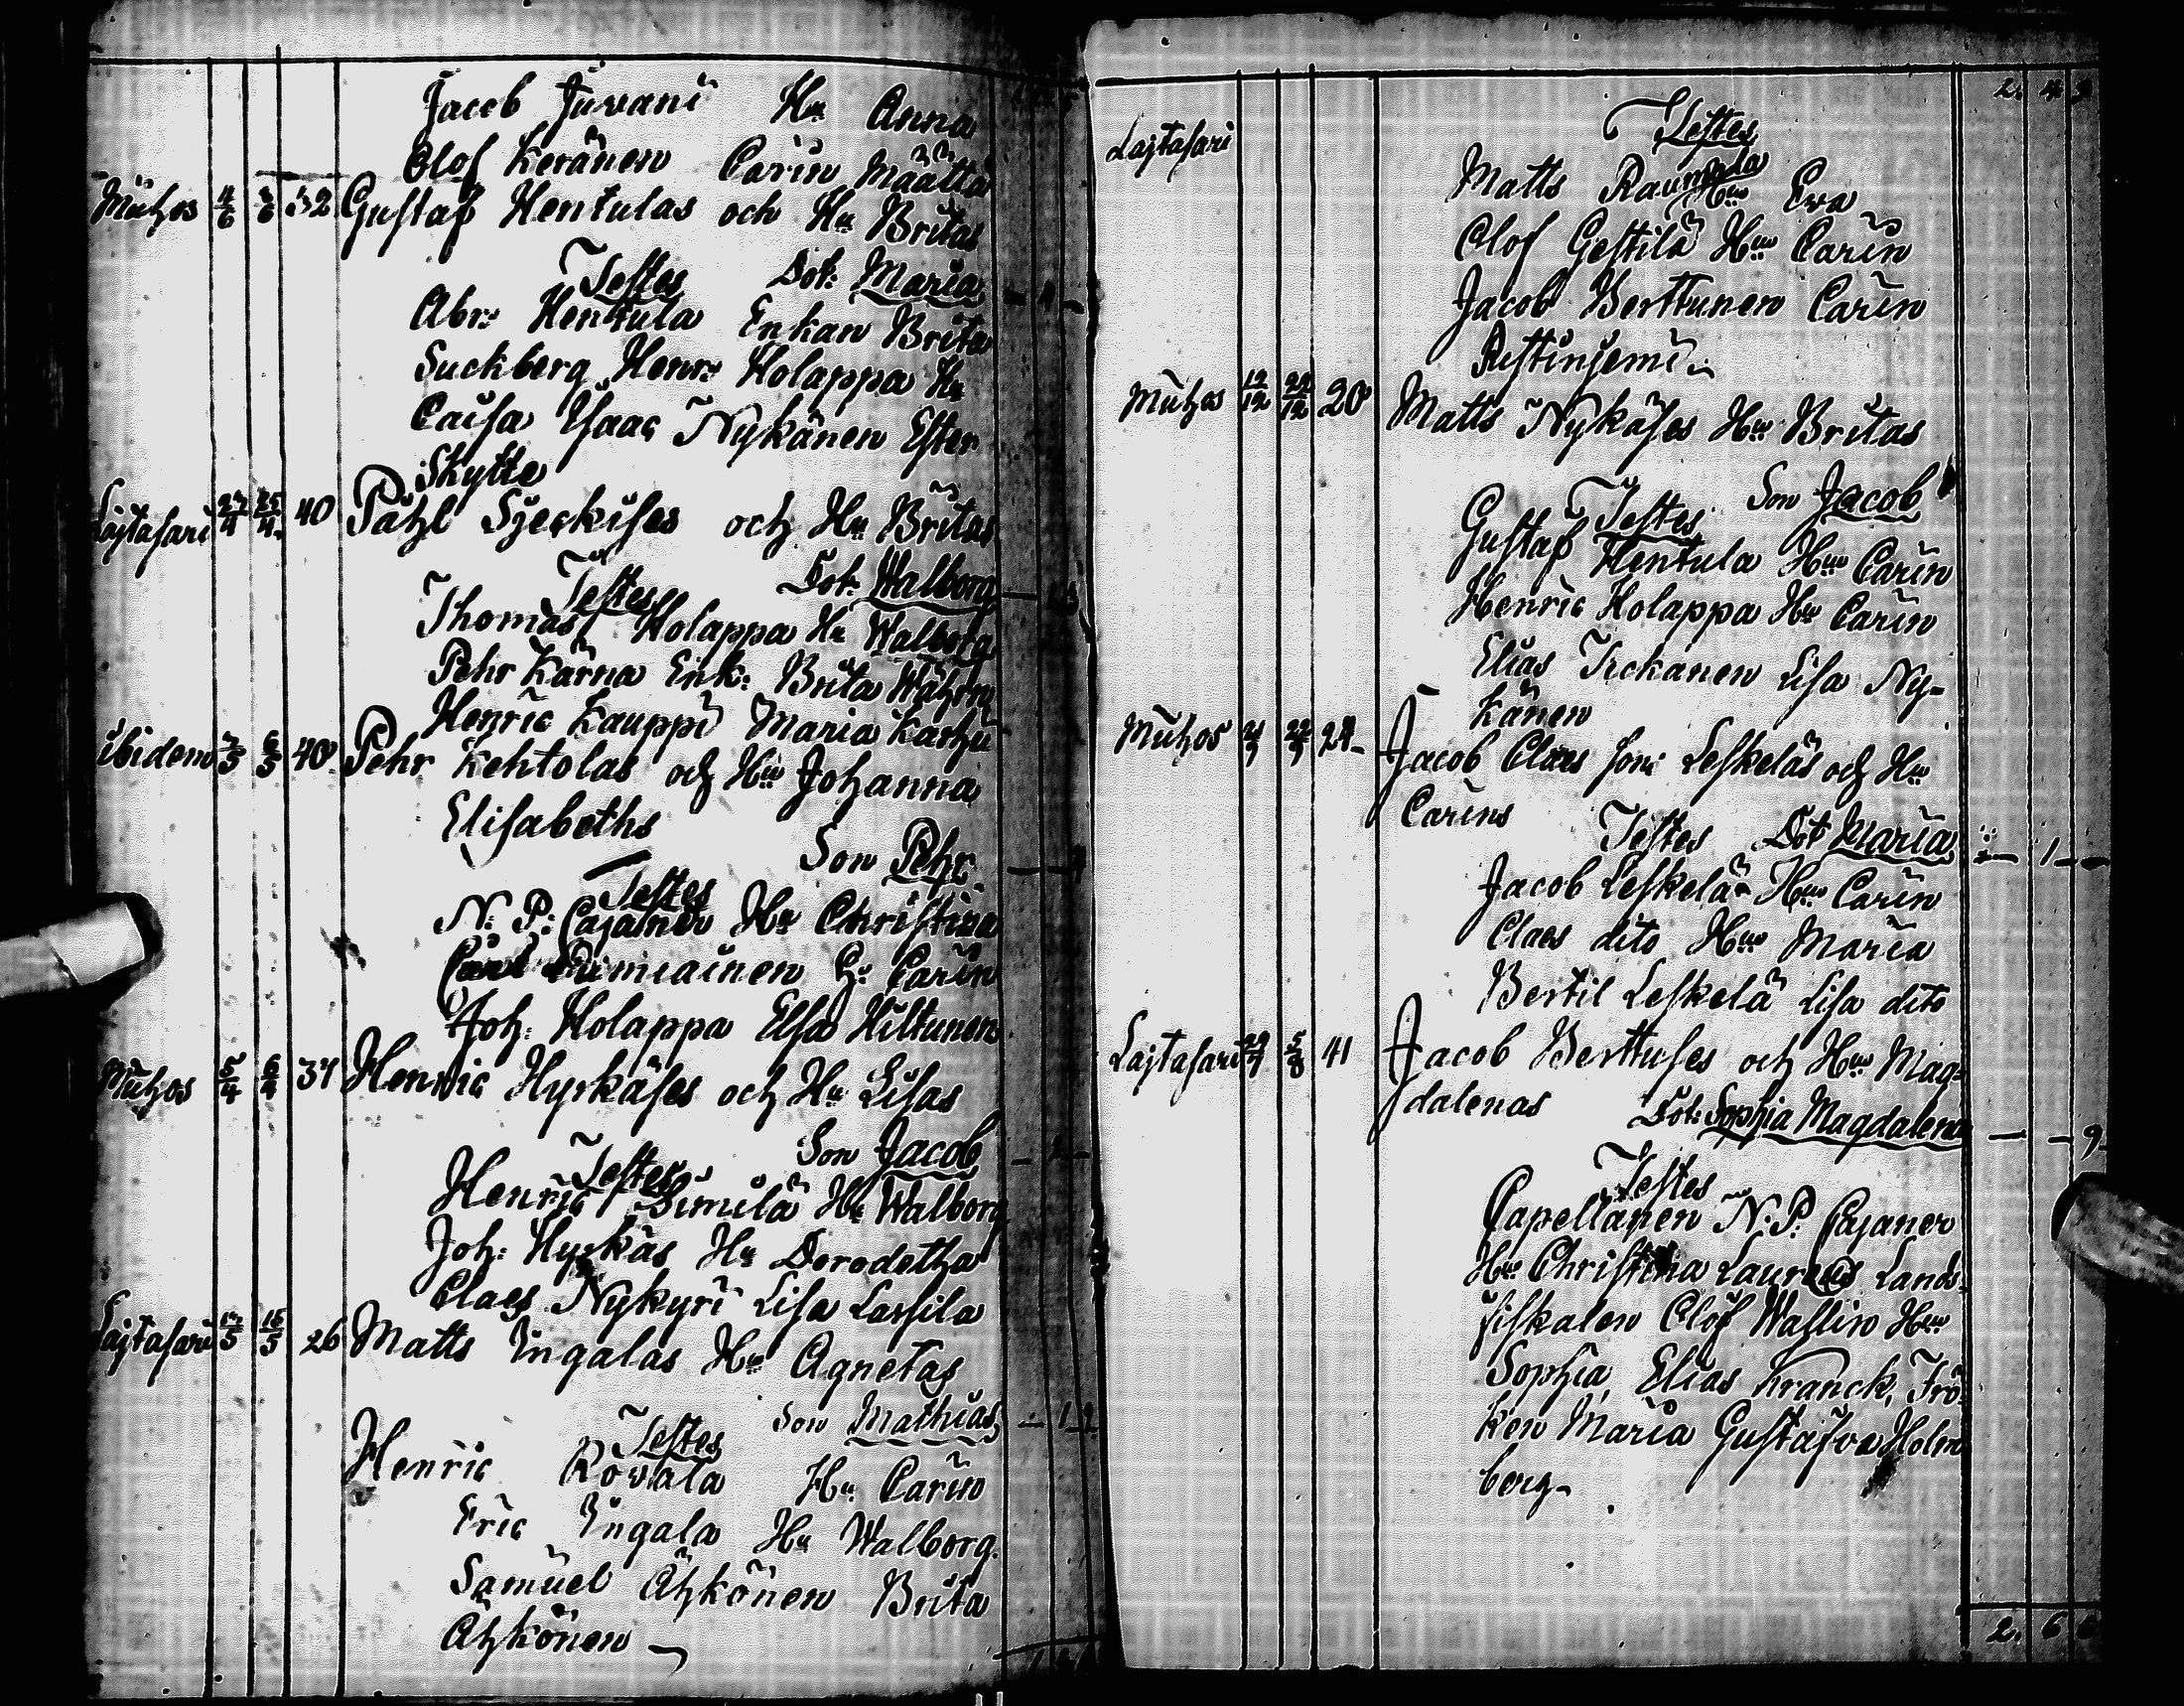 Jacob Juvani Hu Anna
Olof Keränen Carin Määttä
Muhos 4/6 32 Gustaf Hentulas och Hu Britas
Testes Dot: Maria
Abr: Hentula Enkan Brita
Suckberg Henr: Holappa Hu
Caisa Isaac Nykänen Ester
Skytte
Lajtasari 40 Påhl Sjeckises och Hu Britas
Testes Dot: Walborg
Thomas Holappa Hu Walborg
Pehr Kärna Enk: Brita
Henric Kauppi Maria Karhu
ibidem 40 Pehr Kehtolas och Hu Johanna
Elisabeths
Son Pehr
Testes
N: P: Cajaner Hu Christina
Carin
Joh: Holappa Elsa Hiltunen
Muhos 5/4 6/4 37 Henric Hyrkäses och Hu Lisas
Son Jacob
Testes
Henric Similä Hu Walborg
Joh: Hyrkäs Hu Dorodetha
Claes Nykyri Lisa Lassila
Lajtasari 15/5 26 Matts Ingalas Hu Agnetas
Testes Son Mathias
Henric Rovala Hu Carin
Eric Ingala Hu Walborg.
Samuel Ahkönen Brita
Ahkönen
2. 4
Lajtasari Testes
Matts Hu Eva
Olof Gestilä Hu Carin
Jacob Berttunen Carin
Ristinjemi
Muhos 12/12 20 Matts Nykäses Hu Britas
Testes Son Jacob
Gustaf Hentula Hu Carin
Henric Holappa Hu Carin
Elias Tickanen Lisa Ny-
känen
Muhos 24 Jacob Claes sons Leskeläs och Hu
Carins Testes Dot Maria 1
Jacob Leskelä Hu Carin
Claes dito Hu Maria
Bertil Leskelä Lisa dito
Lajtasari 5/8 41 Jacob Berttuses och Hu Mag-
dalenas Dot: Sophia Magdalena 9
Testes
Capellanen N: P: Cajaner
Hu Christina Laurea Lands-
fiskalen Olof Wallin Hu
Sophia Elias Kranck, Frö-
ken Maria Gustafva Holm
berg
2. 6